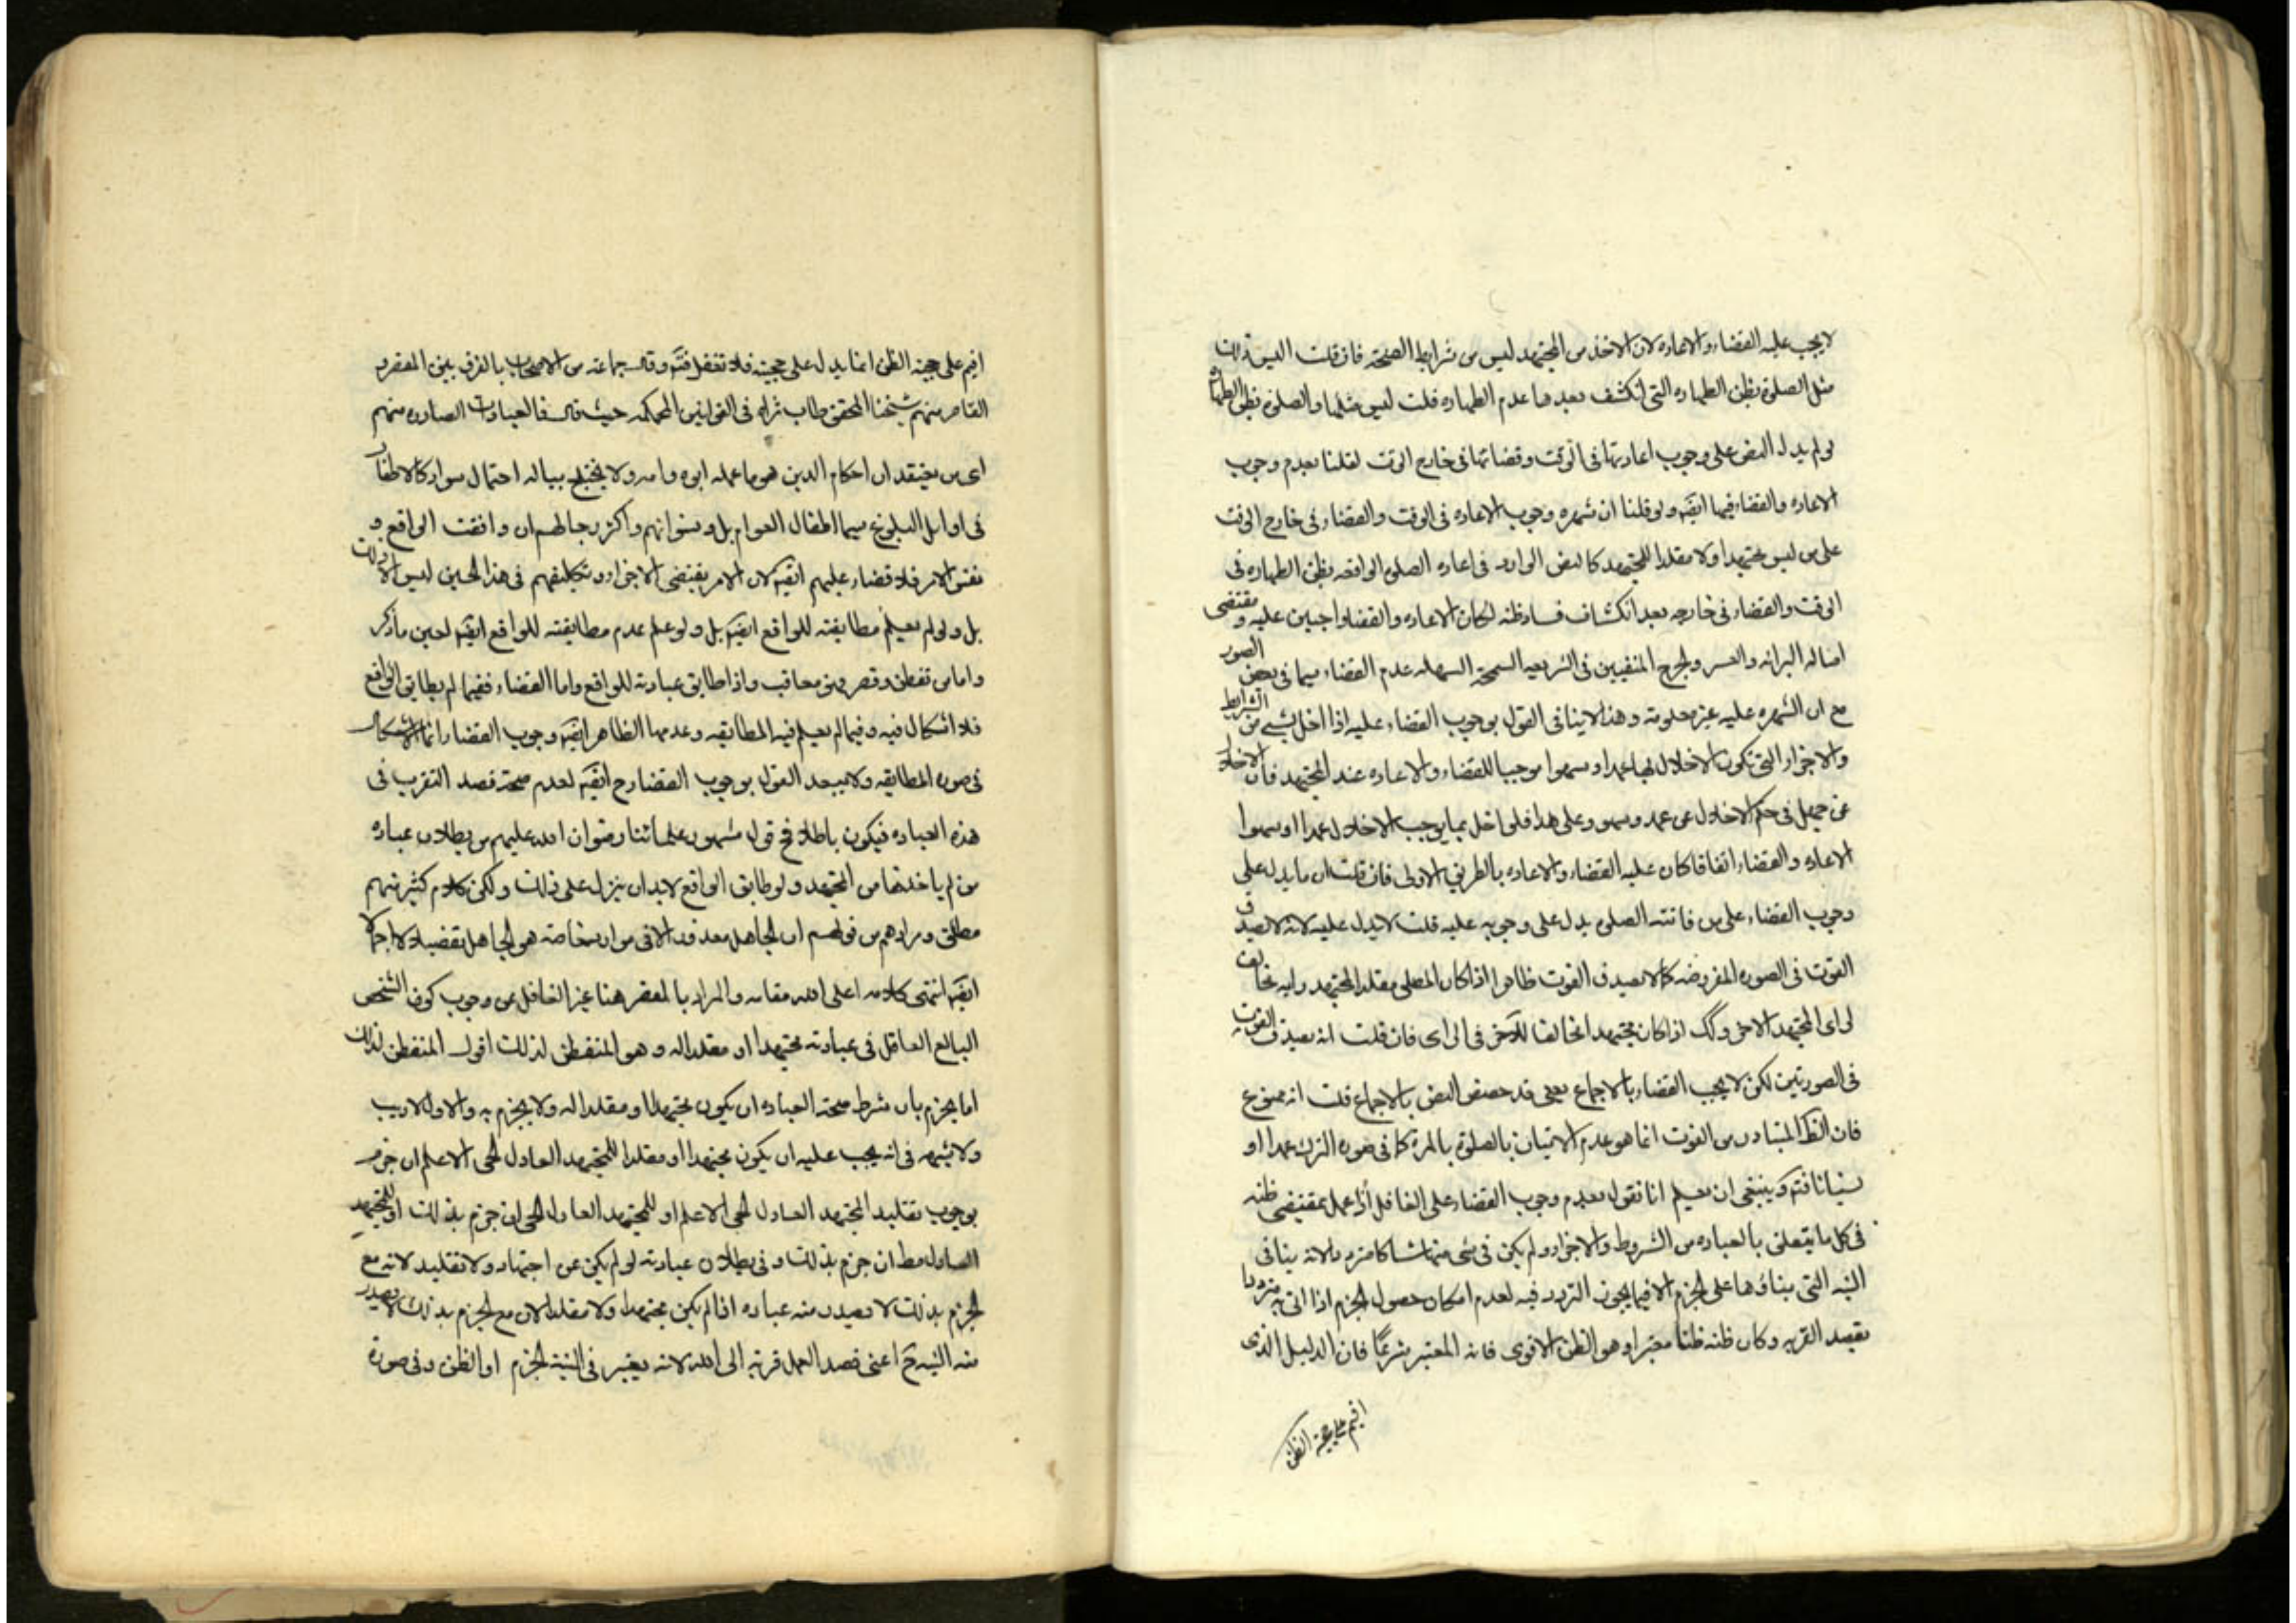 لا يجب عليه القضاء والاعاده لان الاخذ من المجتهد ليس من شرايط الصحة فان قلت اليس ذلك
مثل الصلوة بظن الطهاره التى انكشف بعدها عدم الطهاره قلت ليس مثلها والصلوة بظن الطهارة
لو لم يدل النص على وجوب اعادتها فى الوقت وقضائها فى خارج الوقت لقلنا بعدم وجوب
الاعاده والقضاء فيها ايضا ولو قلنا ان شهره وجوب الاعاده فى الوقت والقضاء فى خارج الوقت
على من ليس مجتهدا ولا مقلدا للمجتهد كالنص الوارد فى اعاده الصلوة الواقعه بظن الطهاره فى
الوقت والقضاء فى خارجه بعد انكشاف فساد ظنه لكان الاعاده والقضاء واجبين عليه ومقتضى
اصاله البرائه والعسر والحرج المنفيين فى الشريعه السمحة السهله عدم القضاء سيما فى بعض الصور
مع ان الشهره عليه غير معلومة وهذا لا ينافى القول بوجوب القضاء عليه اذا اخل بشىء من الشرايط
والاجزاء التى تكون الاخلال بها عمدا وسهوا موجبا للقضاء والاعاده عند المجتهد فان الاخلال
عن جهل فى حكم الاخلال عن عمد وسهو وعلى هذا فلو اخل بما يوجب الاخلال عمدا او سهوا
الاعاده والقضاء اتفاقا كان عليه القضاء والاعاده بالطريق الاولى فان قلت ان ما يدل على
وجوب القضاء على من فاتته الصلوة يدل على وجوبه عليه قلت لا يدل عليه لانه لا يصدق
الفوت فى الصوره المفروضه كما لا يصدق الفوت ظاهرا اذا كان المصلى مقلد المجتهد رايه مخالف
لراى المجتهد الاخر وكك اذا كان مجتهدا مخالفا للآخر فى الراى فان قلت انه يصدق الفوت
فى الصورتين لكن لا يجب القضاء بالاجماع يعنى قد خصص النص بالاجماع قلت انه ممنوع
فان الظ المتبادر من الفوت انما هو عدم الاتيان بالصلوة بالمرة كما فى صوره الترك عمدا او
نسيانا فتم وينبغى ان يعلم انا نقول بعدم وجوب القضاء على الغافل اذا عمل بمقتضى ظنه
فى كل ما يتعلق بالعباده من الشروط والاجزاء ولم يكن فى شى منها شاكا مترددا لانه ينافى
النيه التى بناؤها على الجزم الا فيما يجوز التردد فيه لعدم امكان حصول الجزم اذا اتى به مترددا
بقصد القربه وكان ظنه ظنا معتبرا وهو الظن الاقوى فانه المعتبر شرعا فان الدليل الذى
اقيم على حجية الظن
اقيم على حجية الظن انما يدل على حجيته فلا تغفل فتم وقال جماعة من الاصحاب بالفرق بين المقصر و
القاصر منهم شيخنا المحقق طاب ثراه فى القوانين المحكمه حيث قال فالعبادات الصادره منهم
اى من يعتقد ان احكام الدين هو ما عمله ابوه وامه ولا يختلج بباله احتمال سواه كالاطفال
فى اوايل البلوغ سيما اطفال العوام بل ونسوانهم واكثر رجالهم ان وافقت الواقع و
نفس الامر فلا قضاء عليهم ايضا لان الامر يقتضى الاجزاء وتكليفهم فى هذا الحين ليس الا ذلك
بل ولو لم يعلم مطابقته للواقع ايضا بل ولو علم عدم مطابقته للواقع ايضا لعين ما ذكر
واما من تفطن وقصر فهو معاقب واذا طابق عبادته للواقع واما القضاء ففيما لم يطابق الواقع
فلا اشكال فيه وفيما لم يعلم فيه المطابقه وعدمها الظاهر ايضا وجوب القضاء وانما الاشكال
فى صوره المطابقه ولا يبعد القول بوجوب القضاء ح ايضا لعدم صحة قصد التقرب فى
هذه العباده فيكون باطلا فح قول مشهور علمائنا رضوان الله عليهم من بطلان عباده
من لم ياخذها من المجتهد ولو طابق الواقع لابد ان ينزل على ذلك ولكن كلام كثير منهم
مطلق ومرادهم من قولهم ان الجاهل معذور الا فى مواد خاصة هو الجاهل تفصيلا لا اجمالا
ايضا انتهى كلامه اعلى الله مقامه والمراد بالمقصر هنا غير الغافل عن وجوب كون الشخص
البالغ العاقل فى عبادته مجتهدا او مقلدا له وهو المتفطن لذلك اقول المتفطن لذلك
اما يجزم بان شرط صحة العباده ان يكون مجتهدا او مقلدا له ولا يجزم به والاول لاريب
ولا شبهه فى انه يجب عليه ان يكون مجتهدا او مقلدا للمجتهد العادل الحى الاعلم ان جزم
بوجوب تقليد المجتهد العادل الحى الاعلم او للمجتهد العادل الحى ان جزم بذلك او للمجتهد
العادل مط ان جزم بذلك وفى بطلان عبادته لو لم يكن عن اجتهاد ولا تقليد لانه مع
الجزم بذلك لا يصدر منه عباده اذا لم يكن مجتهدا ولا مقلدا لان مع الجزم بذلك لا يصدر
منه النيه ح اعنى قصد العمل قربة الى الله لانه يعتبر فى النية الجزم او الظن وفى صورة